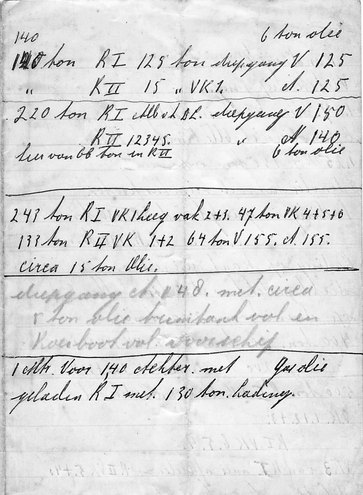 140
6 ton olie
140 ton R I 125 ton diepgang V 125
" R II 15 " VK 1. A. 125
220 ton R I diepgang V 150
R II 12345. " A 140
6 ton olie
243 ton R I VK 1 leeg vak 2+3. 47 ton VK 4+5+6
133 ton R II VK 1+2 64 ton V 155. A. 155.
circa 15 ton Olie.
diepgang A. 048. met circa
ton olie vol en
Roeiboot vol. voorschip
1 Mtr. Voor 140 Achter. met Gasolie
geladen R I met. 130 ton. lading.